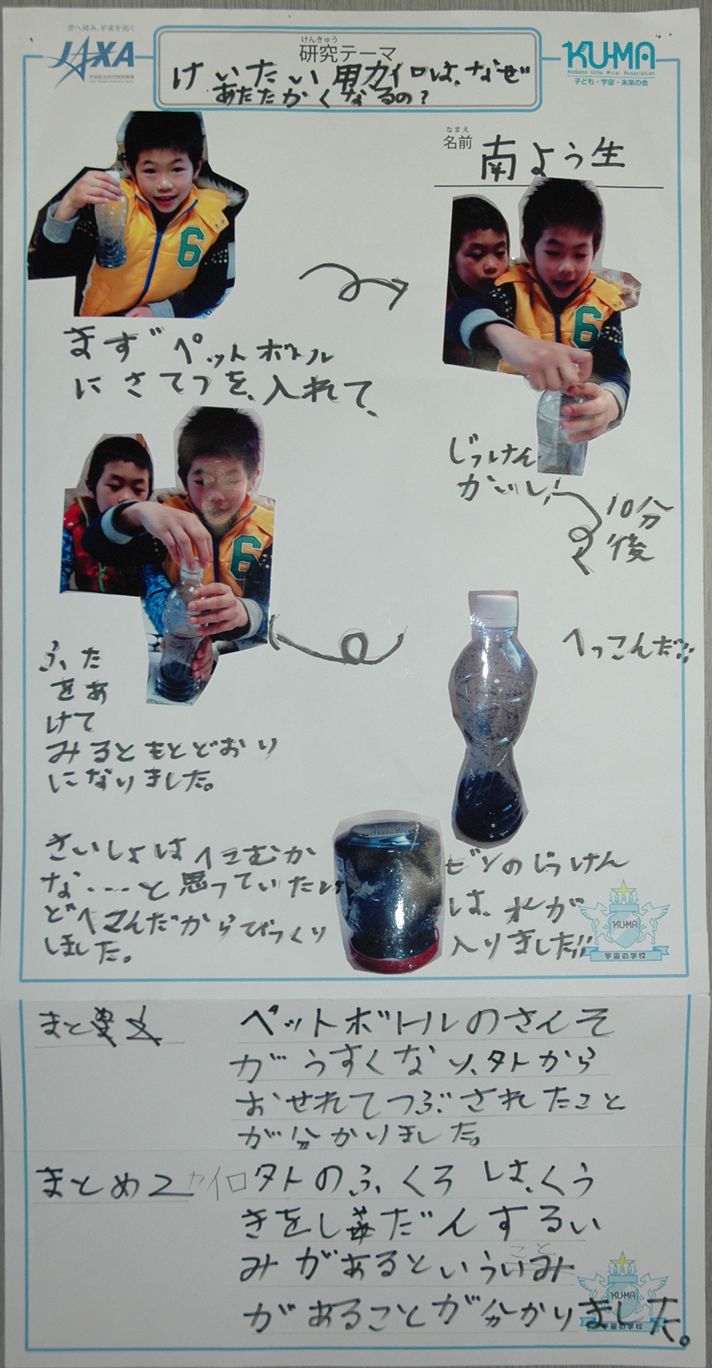 空へ挑み、宇宙を拓く
JAXA
けんきゅう
研究テーマ
けいたい用カイロは、なぜ
あたたかくなるの?
KU-MA
Kodomo Uchu Mirai Association
子ども・宇宙・未来の会
なまえ
名前
南よう生
まずペットボトル
にさてつを、入れて、
じっけん
かいし!
10分
後
へっこんだ!!
ふた
をあ
けて
みるともとどおり
になりました。
さいしょはへこむか
な・・・・と思っていたけ
どへこんだからびっくり
しました。
ビンのじっけん
は、水が
入りました!!
KU-MA
宇宙の学校
まとめ
ペットボトルのさんそ
がうすくなり、外から
おせれてつぶされたこと
が分かりました。
まとめ2
カイロ外のふくろは、くう
きをしゃだんするい
みがあるといういみ
こと
があることが分かりました。
KU-MA
宇宙の学校